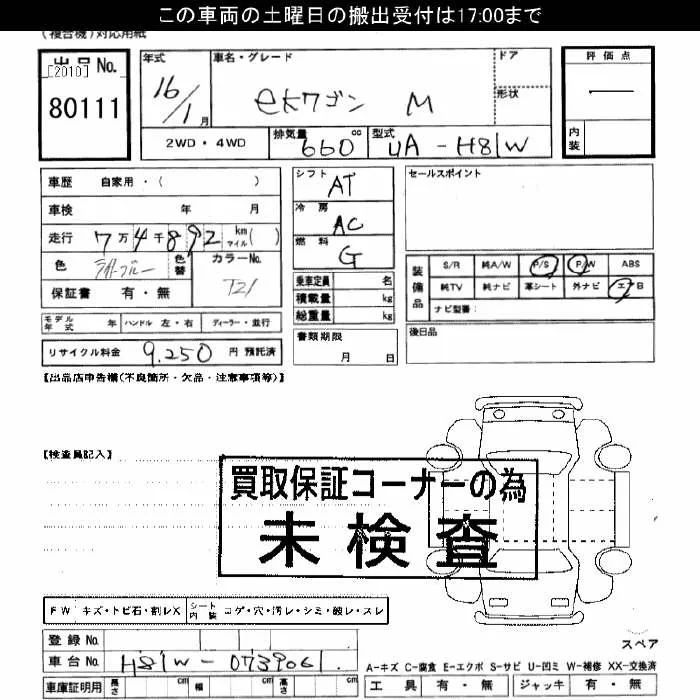 この車両の土曜日の搬出受付は17:00まで
(複合機)対応用紙
出品 No.
[2010]
80111
年式 16/1月
車名・グレード ekワゴン M
ドア
形状
評価点
内装
2WD・4WD
排気量 660 cc
型式 UA-H81W
車歴 自家用・( )
車検 年 月
走行 7万4千892 km マイル( )
色 ライトブルー 色替
カラーNo. T21
保証書 有・無
シフト AT
冷房 AC
燃料 G
乗車定員 名
積載量 kg
総重量 kg
セールスポイント
装備品
S/R 純A/W P/S P/W ABS
純TV 純ナビ 革シート 外ナビ エアB
ナビ型番:
モデル年式 年 ハンドル 左・右 ディーラー・並行
リサイクル料金 9,250 円 預託済
書類期限
月 日
後日品
【出品店申告欄(不良箇所・欠品・注意事項等)】
【検査員記入】
買取保証コーナーの為
未検査
FW キズ・トビ石・割レX シート内装 コゲ・穴・汚レ・シミ・破レ・スレ
スペア
登録 No.
車台 No. H81W-0739061
A-キズ C-腐食 E-エクボ S-サビ U-凹ミ W-補修 XX-交換済
車庫証明用 長さ cm 幅 cm 高さ cm
工具 有・無 ジャッキ 有・無